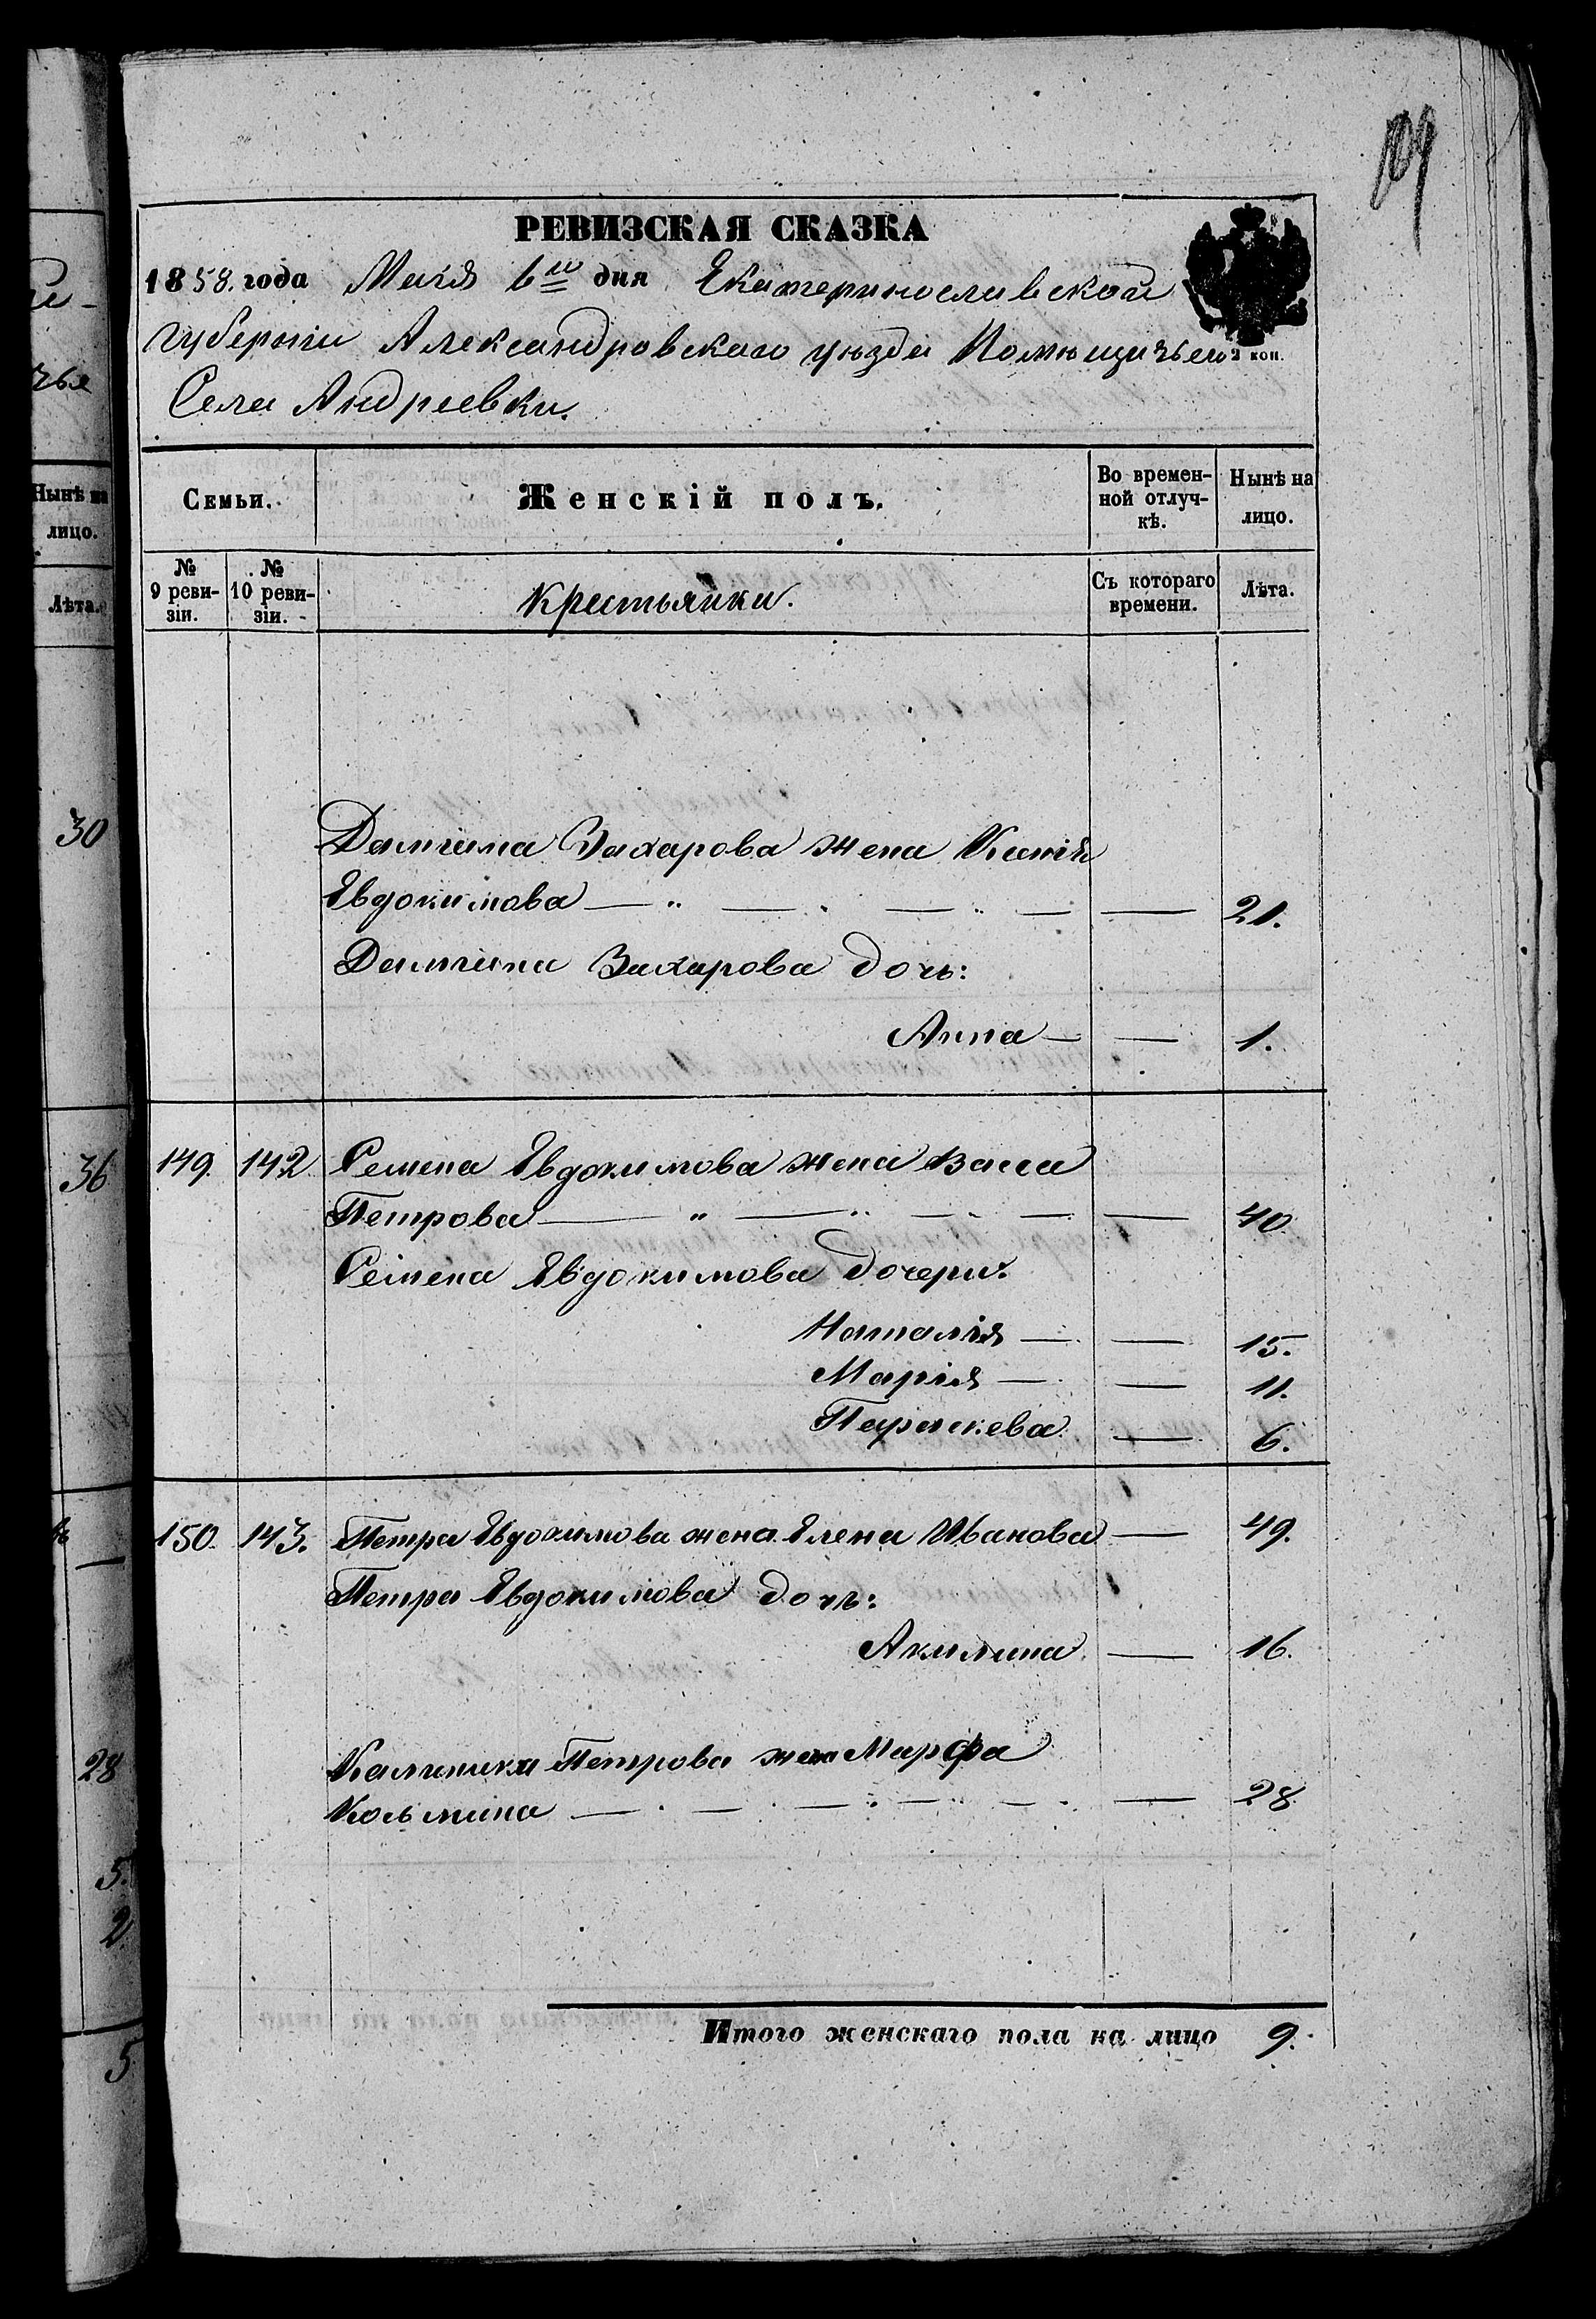 109
РЕВИЗСКАЯ СКАЗКА
1858. года Маія 6го дня Екатеринославской
Губерніи Александровскаго уѣзда Помѣщичьяго 2 коп.
Села Андреевки.
Семьи.
Женскій полъ.
Во времен-
ной отлуч-
кѣ.
Ныне на
лицо.
№
9 реви-
зіи.
№
10 реви-
зіи.
Крестьянки.
Съ котораго
времени.
Лѣта.
Даміана Захарова жена Ксенія
Евдокимова — " — " — " — — 21.
Даміана Захарова дочь:
Анна — — 1.
149. 142 Семена Евдокимова жена Васса
Петрова — " — " — — — 40.
Семена Евдокимова дочери:
Наталія — — 15.
Марія — — 11.
Параскева — 6.
150. 143. Петра Евдокимова жена Елена Иванова — 49.
Петра Евдокимова дочь:
Акилина — 16.
Калиника Петрова жена Марфа
Козьмина — — — — — — 28
Итого женскаго пола на лицо 9.
чье
Нынѣ на
лицо.
Лѣта.
30
36
28
5.
2
5